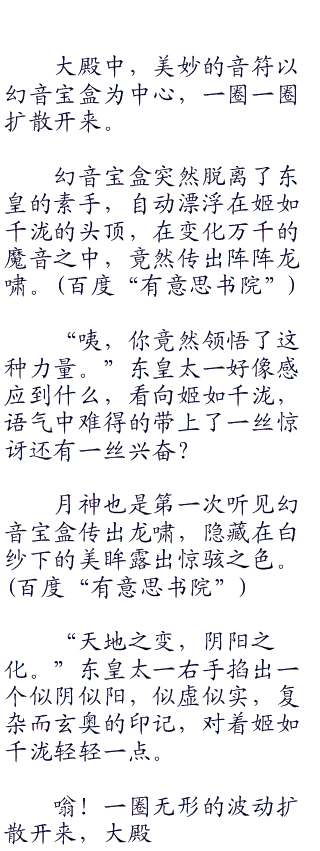 大殿中，美妙的音符以
幻音宝盒为中心，一圈一圈
扩散开来。
幻音宝盒突然脱离了东
皇的素手，自动漂浮在姬如
千泷的头顶，在变化万千的
魔音之中，竟然传出阵阵龙
啸。(百度“有意思书院”)
“咦，你竟然领悟了这
种力量。”东皇太一好像感
应到什么，看向姬如千泷，
语气中难得的带上了一丝惊
讶还有一丝兴奋？
月神也是第一次听见幻
音宝盒传出龙啸，隐藏在白
纱下的美眸露出惊骇之色。
(百度“有意思书院”)
“天地之变，阴阳之
化。”东皇太一右手掐出一
个似阴似阳，似虚似实，复
杂而玄奥的印记，对着姬如
千泷轻轻一点。
嗡！一圈无形的波动扩
散开来，大殿